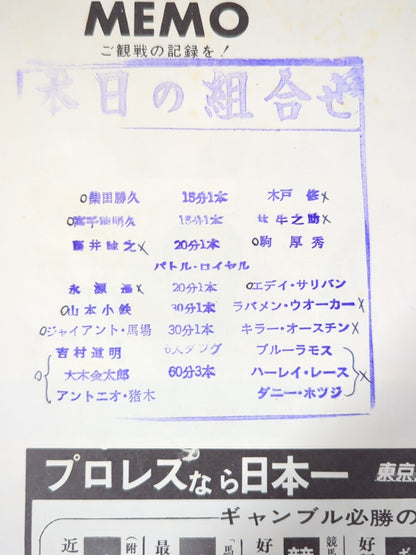 MEMO
ご観戦の記録を!
本日の組合せ
○柴田勝久 15分1本 木戸修×
○高千穂明久 15分1本 林牛之助×
藤井誠之× 20分1本 ○駒厚秀
バトル・ロイヤル
永源遙× 20分1本 ○エデイ・サリバン
○山本小鉄 30分1本 ラバメン・ウオーカー×
○ジャイアント・馬場 30分1本 キラー・オースチン×
吉村道明 6人タッグ ブルーラモス
○大木金太郎 60分3本 ハーレイ・レース×
アントニオ・猪木 ダニー・ホツジ
プロレスなら日本一 東京
ギャンブル必勝の
近 (附 最 「馬 好 競馬 好